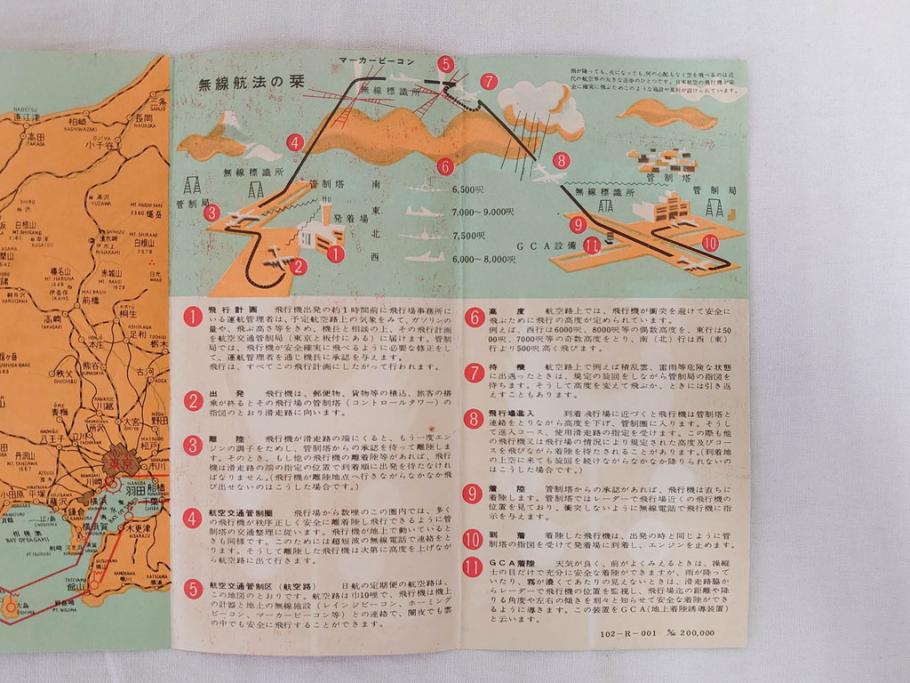 無線航法の栞
マーカービーコン
無線標識所
雨が降っても、夜になっても、何の心配もなく空を飛べるのは近
代の航空事の大きな活歩のひとつです。日本航空の飛行機が安
全に確実に飛ぶためこのような施設や規則が設けられています。
無線標識所
管制塔
管制局
発着場
南 6,500呎
東 7,000～9,000呎
北 7,500呎
西 6,000～8,000呎
管制塔
無線標識所
管制局
GCA設備
1 飛行計画 飛行機出発の約1時間前に飛行場事務所に
いる運航管理者は、予定航空路上の気象をみて、ガソリンの
量や、飛ぶ高さ等をきめ、機長と相談の上、その飛行計画
を航空交通管制局（東京と板付にある）に届けます。管制
局では、飛行機が安全確実に飛べるように必要な修正をし
て、運航管理者を通じ機長に承認を与えます。
飛行は、すべてこの飛行計画にしたがって行われます。
2 出発 飛行機は、郵便物、貨物等の積込、旅客の搭
乗が終るとその飛行場の管制塔（コントロールタワー）の
指図のとおり滑走路に向います。
3 離陸 飛行機が滑走路の端にくると、もう一度エン
ジンの調子をためし、管制塔からの承認を待って離陸しま
す。そのとき、もし他の飛行機の離着陸等があれば、飛行
機は滑走路の端の指定の位置で到着順に出発を待たなけれ
ばなりません。(飛行機が離陸地点へ行きながらなかなか飛
び出せないのはこうした場合です。)
4 航空交通管制圏 飛行場から数哩のこの圏内では、多く
の飛行機が秩序正しく安全に離着陸し飛行できるように管
制塔の交通整理に従います。飛行機が地上で動いていると
きも同様です。このためには超短波の無線電話で連絡をと
ります。そうして離陸した飛行機は次第に高度を上げなが
ら航空路に出て行きます。
5 航空交通管制区（航空路） 日航の定期便の航空路は、
この地図のとおりです。航空路は巾10哩で、飛行機は機上
の計器と地上の無線施設（レインジビーコン、ホーミング
ビーコン、マーカービーコン等）との連絡で、闇夜でも雲
の中でも安全に飛行することができます。
6 高度 航空路上では、飛行機が衝突を避けて安全に
飛ぶために飛行の高度が定められています。
例えば、西行は6000呎、8000呎等の偶数高度を、東行は50
00呎、7000呎等の奇数高度をとり、南（北）行は西（東）
行より500呎高く飛びます。
7 待機 航空路上で例えば積乱雲、雷雨等危険な状態
に出遇ったときは、規定の旋回をしながら管制局の指図を
待ちます。そうして高度を変えて飛ぶか、ときには引き返
えすこともあります。
8 飛行場進入 到着飛行場に近づくと飛行機は管制塔と
連絡をとりながら高度を下げ、管制圏に入ります。そうし
て進入コース、使用滑走路の指定を受けます。この際も他
の飛行機又は飛行場の情況により規定された高度及びコー
スを飛びながら着陸を待たされることがあります。(到着地
の上空に来ても旋回を続けながらなかなか降りられないの
はこうした場合です。)
9 着陸 管制塔からの承認があれば、飛行機は直ちに
着陸します。管制塔ではレーダーで飛行場近くの飛行機の
位置を見ており、衝突しないように無線電話で飛行機に指
示を与えます。
10 到着 着陸した飛行機は、出発の時と同じように管
制塔の指図を受けて発着場に到着し、エンジンを止めます。
11 GCA着陸 天気が良く、前がよくみえるときは、操縦
士の目だけで充分に安全な着陸ができますが、雨が降って
いたり、霧が濃くてあたりの見えないときは、滑走路脇か
らレーダーで飛行機の位置を監視し、飛行場迄の距離や降
りる角度や左右の傾きを別々と知らせて安全な着陸ができ
るように導きます。この装置をGCA(地上着陸誘導装置)
と云います。
102-R-001 200,000
直江津
高田
柏崎
長岡
三条
小千谷
白根山
榛名山
赤城山
前橋
桐生
足利
栃木
本庄
熊谷
秩父
古河
川越
大宮
青梅
八王子
立川
松戸
市川
丹沢山
東京
川崎
羽田
船橋
千葉
横浜
小田原
平塚
藤沢
鎌倉
横須賀
木更津
館山
野島崎
大島